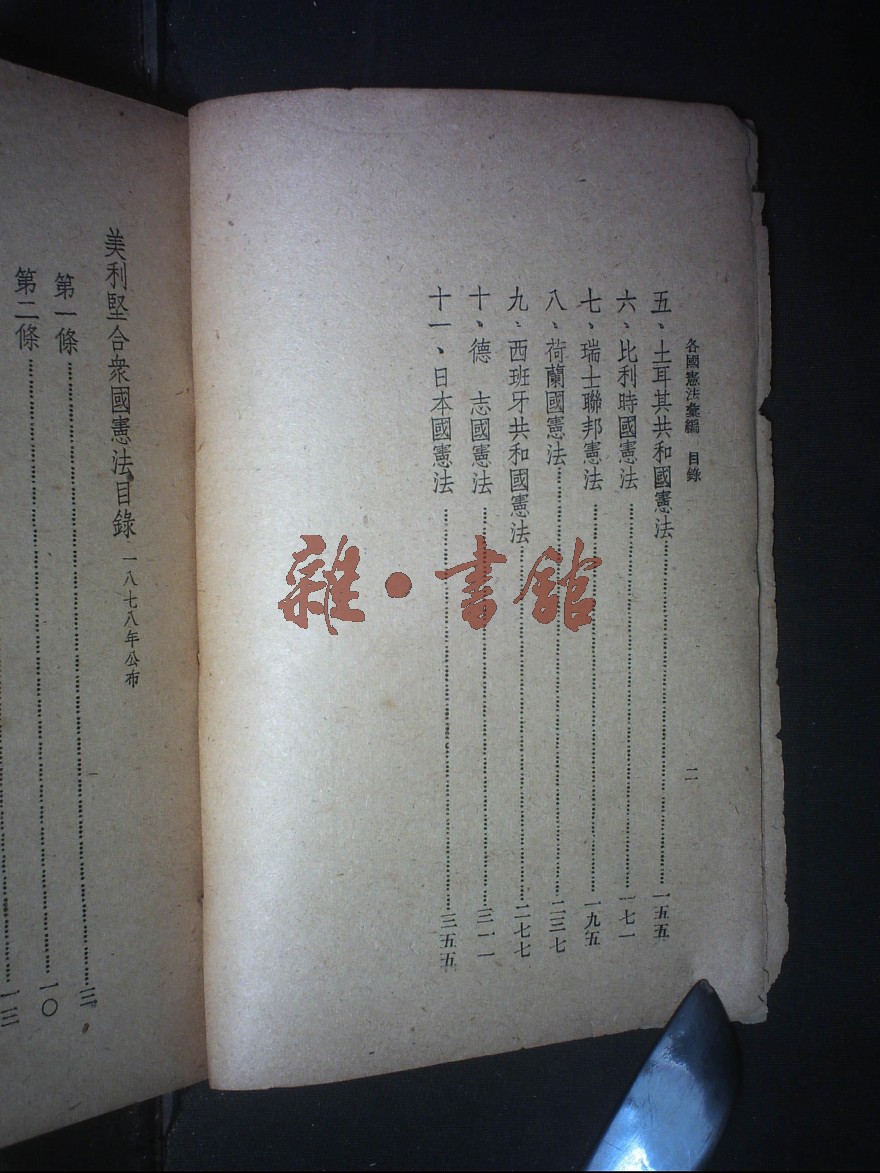 各國憲法彙編 目錄 二
五、土耳其共和國憲法 一五五
六、比利時國憲法 一七一
七、瑞士聯邦憲法 一九五
八、荷蘭國憲法 二三七
九、西班牙共和國憲法 二七七
十、德 志國憲法 三一一
十一、日本國憲法 三五五
雜·書館
美利堅合衆國憲法目錄 一八七八年公布
三
第一條 一〇
第二條 一三